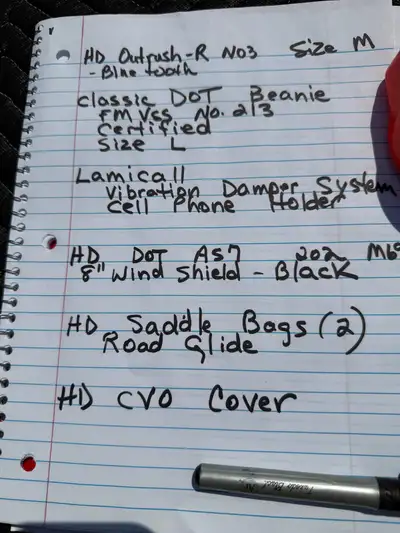 HD Outrush-R NO3 Size M
- Blue tooth
Classic DOT Beanie
FMVSS No. 213
Certified
Size L
Lamicall
Vibration Damper System
Cell Phone Holder
HD DOT AS7 202
8" Wind Shield - Black
HD Saddle Bags (2)
Road Glide
HD CVO Cover